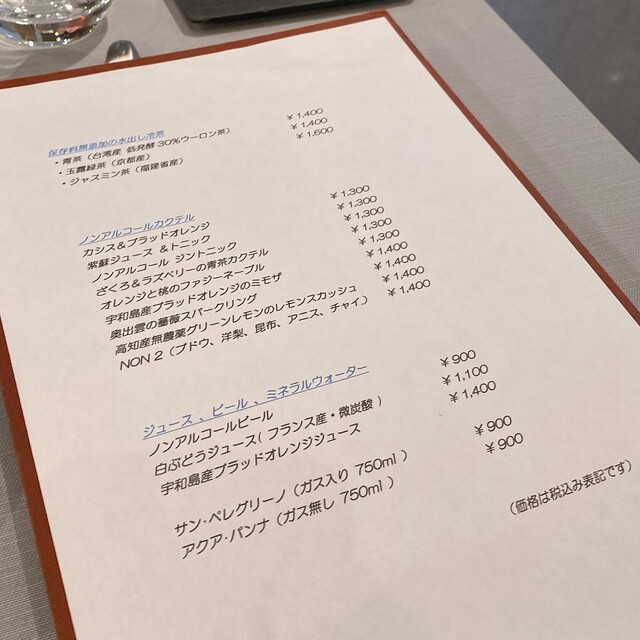 保存料無添加の水出し冷茶
・青茶（台湾産 低発酵 30%ウーロン茶） ￥1,400
・玉露緑茶（京都産） ￥1,400
・ジャスミン茶（福建省産） ￥1,600
ノンアルコールカクテル
カシス＆ブラッドオレンジ ￥1,300
紫蘇ジュース ＆トニック ￥1,300
ノンアルコール ジントニック ￥1,300
ざくろ＆ラズベリーの青茶カクテル ￥1,300
オレンジと桃のファジーネーブル ￥1,300
宇和島産ブラッドオレンジのミモザ ￥1,400
奥出雲の薔薇スパークリング ￥1,400
高知産無農薬グリーンレモンのレモンスカッシュ ￥1,400
NON 2（ブドウ、洋梨、昆布、アニス、チャイ.） ￥1,400
ジュース 、ビール 、ミネラルウォーター
ノンアルコールビール ￥900
白ぶどうジュース( フランス産・微炭酸 ) ￥1,100
宇和島産ブラッドオレンジジュース ￥1,400
サン・ペレグリーノ（ガス入り 750ml ） ￥900
アクア・パンナ（ガス無し 750ml ） ￥900
（価格は税込み表記です）